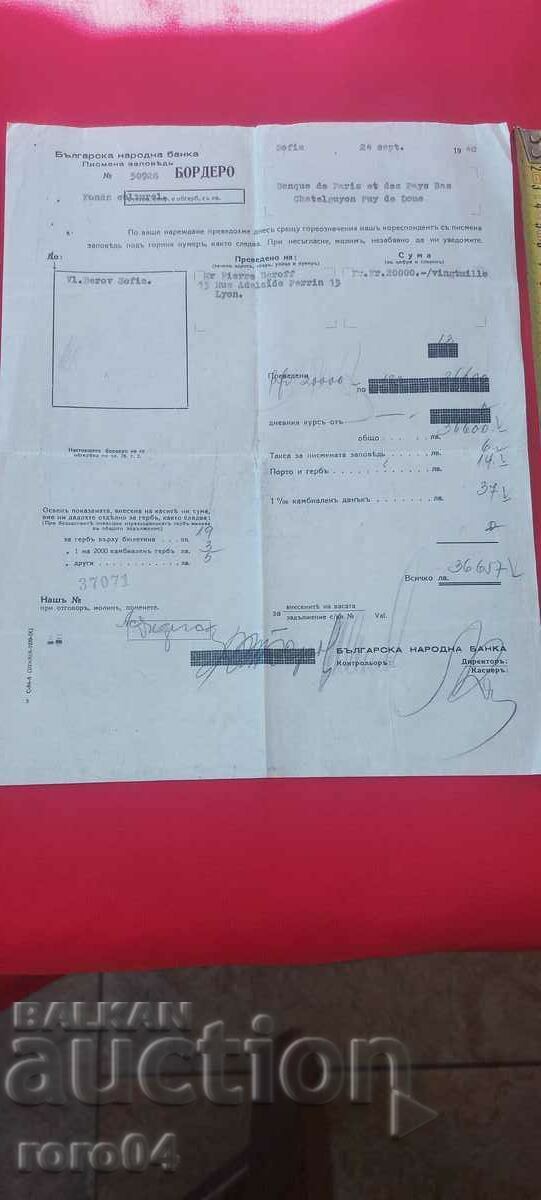 Българска народна банка
Писмена заповѣдь
№ 50926 БОРДЕРО
Sofia, 24 sept. 1940
Fonds culturel.
Banque de Paris et des Pays Bas
Chatelguyon Puy de Dome
По ваше нареждане преведохме днесъ срещу гореозначения нашъ кореспондентъ съ писмена
заповѣдь подъ горния нумеръ, както следва. При несъгласие, молимъ, незабавно да ни уведомите.
До:
Преведено на:
Сума
(въ цифри и словомъ)
Vl. Berov Sofia.
Mr Pierre Beroff
15 Rue Adelaide Perrin 15
Lyon.
Fr.Fr.20000.-/vingtmille
Преведени 20000 по
дневния курсъ отъ
общо лв. 36600
Такса за писмената заповѣдь лв. 6
Порто и гербъ лв. 14
1‰ камбиаленъ данъкъ лв. 37
Настоящето бордеро не се
обгербва по чл. 26, т. 2.
Освенъ показаната, внесена на касиеръ ни сума,
вие ни дадохте отдѣлно за гербъ, както следва:
за гербъ върху бюлетина лв. 19
" 1 на 2000 камбиаленъ гербъ лв. 3
" други лв. 5
37071
Всичко лв. 36657
Нашъ №
при отговоръ, молимъ, поменете.
за внесените на касата
задължение с/ка № Val.
БЪЛГАРСКА НАРОДНА БАНКА
Контрольоръ: Директоръ:
Касиеръ:
BALKAN
auction
roro04